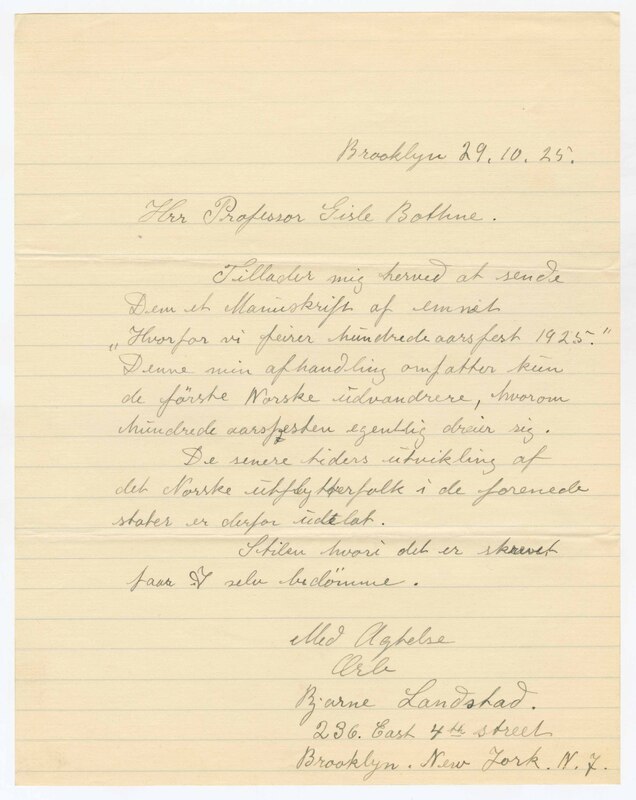 Brooklyn 29. 10. 25.
Hrr Professor Gisle Bothne.
Tillader mig herved at sende
Dem et Manuskrift af emnet
„Hvorfor vi feirer hundredeaarsfest 1925."
Denne min afhandling omfatter kun
de förste Norske udvandrere, hvorom
hundrede aarsfesten egentlig dreier sig.
De senere tiders utvikling af
det Norske utflytterfolk i de forenede
stater er derfor udelat.
Stilen hvori det er skrevet
faar I selv bedömme.
Med Agtelse
Ærb
Bjarne Landstad.
236. East 4th street
Brooklyn. New York. N.Y.